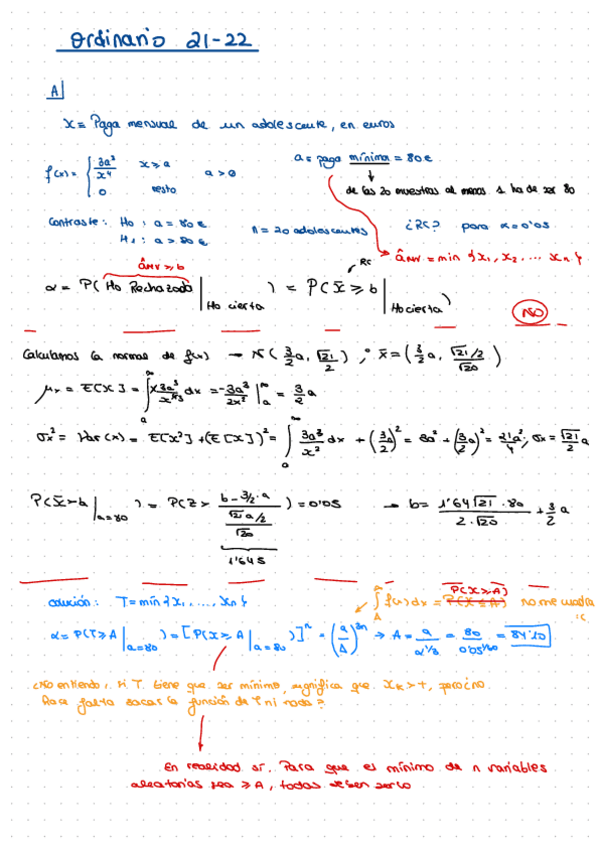 Ordinario 21-22
A
X ≡ Paga mensual de un adolescente, en euros
f(x) = { 3a³/x⁴   x ≥ a   a > 0
0   resto
a = paga mínima = 80 €
de las 20 muestras al menos 1 ha de ser 80
Contraste: H₀ : a = 80 €   n = 20 adolescentes   ¿RC? para α = 0'05
H₁ : a > 80 €
â_MV = min {x₁, x₂, ... xₙ}
â_MV ≥ b   RC
α = P( H₀ Rechazada | H₀ cierta ) = P( x̄ ≥ b | H₀ cierta )   NO
Calculamos la normal de f(x) → N( 3/2 a, √21/2 ) ; x̄ = ( 3/2 a, √21/2 / √20 )
μₓ = E[X] = ∫ₐ^∞ x 3a³/x⁴³ dx = -3a³/2x² |ₐ^∞ = 3/2 a
σₓ² = Var(x) = E[X²] + (E[X])² = ∫ₐ^∞ 3a³/x² dx + (3a/2)² = 3a² + (3a/2)² = 21a²/4 ; σₓ = √21/2 a
P( x̄ > b | a=80 ) = P( Z > (b - 3/2·a) / (√21 a/2 / √20) ) = 0'05 → b = 1'64√21 · 80 / 2·√20 + 3/2 a
1'645
P(X ≥ A)
solución: T = min {x₁, ..., xₙ}   ∫_A^∞ f(x) dx = P(X ≤ A) no me cuadra :(
α = P(T ≥ A | a=80 ) = [P(X ≥ A | a=80 )]ⁿ = (a/A)³ⁿ → A = a/α^1/3n = 80/0'05^1/60 = 84'10
¿No entiendo :. si T. tiene que ser mínimo, significa que xₖ > t, pero ¿no
hace falta sacar la función de T ni nada?
En realidad sí. Para que el mínimo de n variables
aleatorias sea ≥ A, todas deben serlo